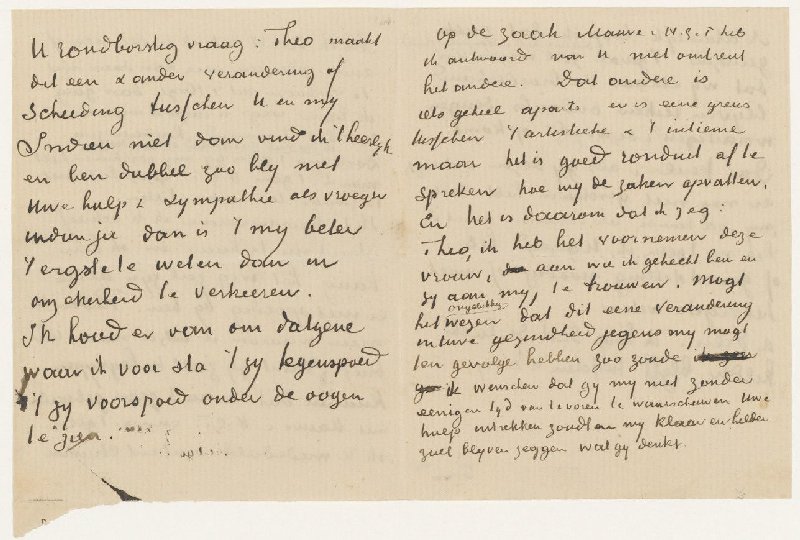 U rondborstig vraag: Theo maakt
dit een & ander verandering of
Scheiding tusschen U en my
Indien niet dan vind ik 't heerlyk
en ben dubbel zoo bly met
Uwe hulp & Sympathie als vroeger
indien ja dan is 't my beter
't ergste te weten dan in
onzekerheid te verkeeren.
Ik houd er van om datgene
waar ik voor sta 't zy tegenspoed
't zy voorspoed onder de oogen
te zien.
op de zaak Mauve. H.G.T heb
ik antwoord van U niet omtrent
het andere. Dat andere is
iets geheel aparts en is eene grens
tusschen 't artistieke & 't intieme
maar het is goed ronduit af te
spreken hoe wy de zaken opvatten.
En het is daarom dat ik zeg:
Theo, ik heb het voornemen deze
vrouw, aan wie ik gehecht ben en
zy aan my, te trouwen. Mogt
ongelukkig
het wezen dat dit eene verandering
in uwe gezindheid jegens my mogt
ten gevolge hebben zoo zoude
ik wenschen dat gy my niet zonder
eenigen tyd van te voren te waarschuwen Uwe
hulp intrekken zoudt en my klaar en helder
zult blyven zeggen wat gy denkt.